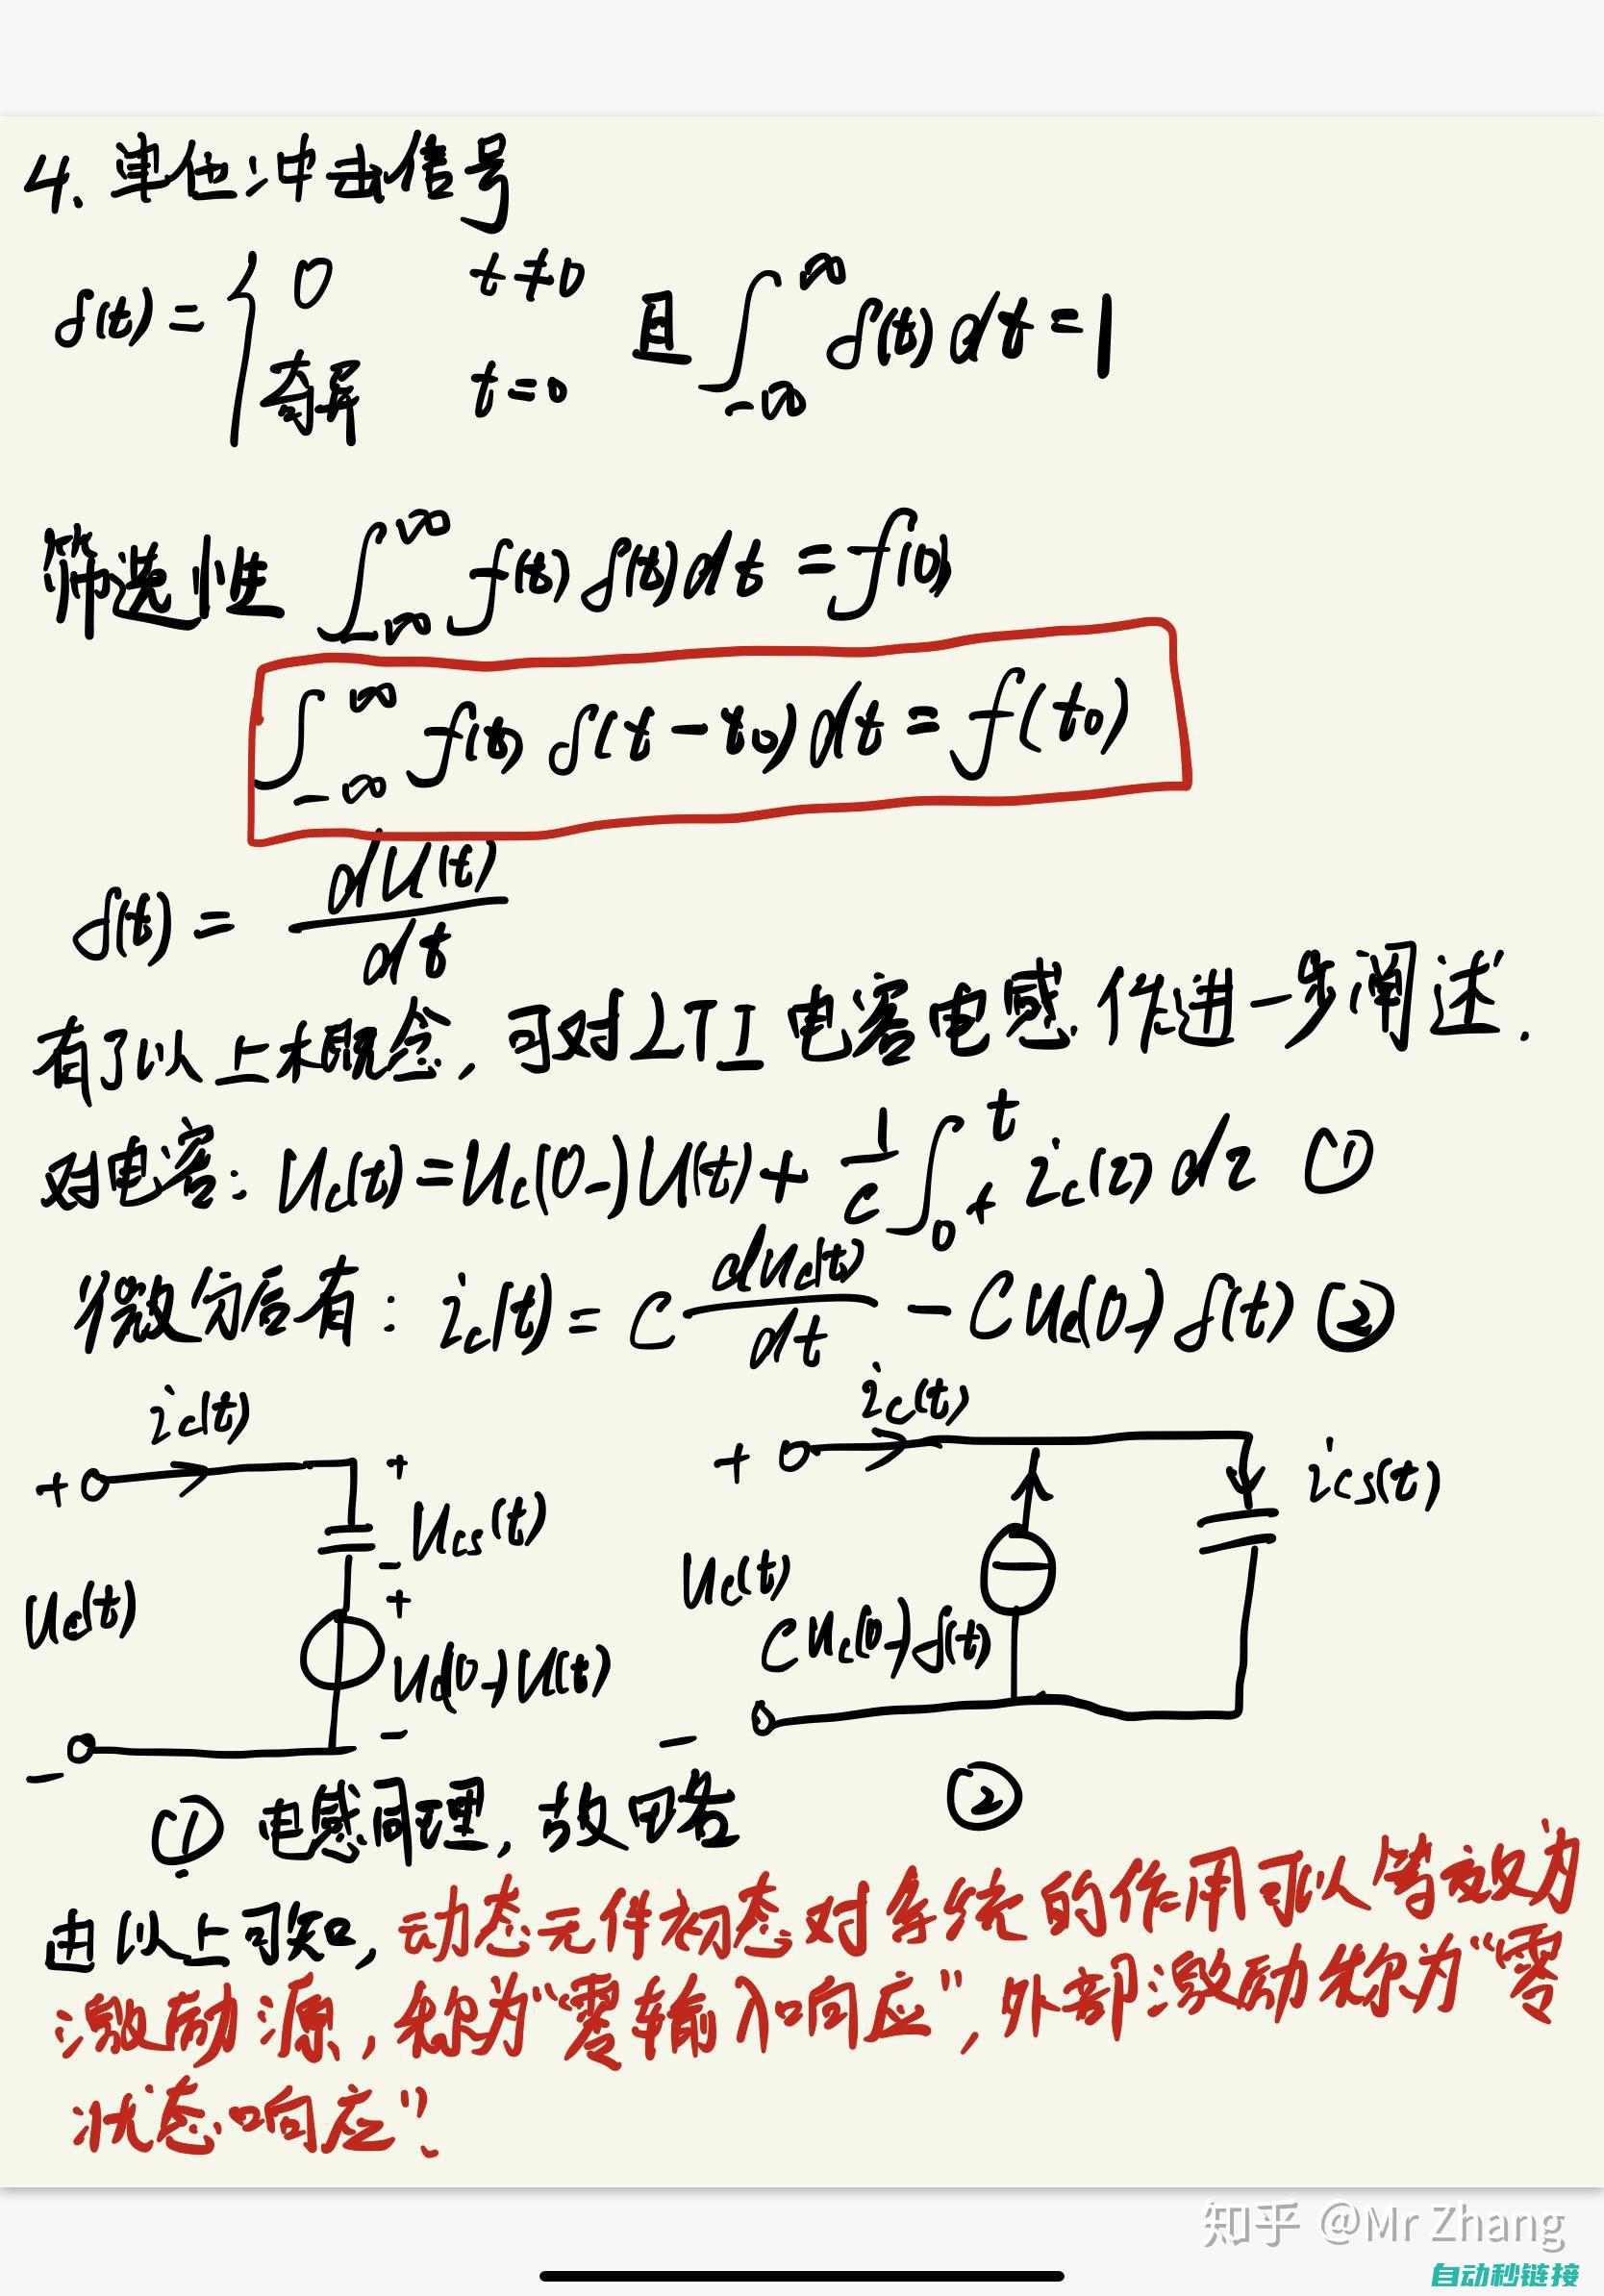 4. 单位冲击信号
δ(t) = { 0 t≠0 奇异 t=0 且 ∫_{-∞}^{∞} δ(t) dt = 1
筛选性 ∫_{-∞}^{∞} f(t) δ(t) dt = f(0)
∫_{-∞}^{∞} f(t) δ(t-t₀) dt = f(t₀)
δ(t) = dU(t)/dt
有了以上概念, 可对LTI 电容电感 作进一步阐述.
对电容: Uc(t) = Uc(0-)U(t) + 1/C ∫_{0+}^{t} ic(τ) dτ ①
微分后有: ic(t) = C dUc(t)/dt - CUc(0-) δ(t) ②
ic(t)
ic(t)
+ +
+ ics(t)
Ucs(t)
- +
Uc(t)
Uc(t)
CUc(0-)δ(t)
Uc(0-)U(t)
- -
-
① 电感同理, 故略
②
由以上可知, 动态元件初态对系统的作用可以等效为
激励源, 称为“零输入响应”, 外部激励称为“零
状态响应”.
知乎 @Mr Zhang
自动秒链接